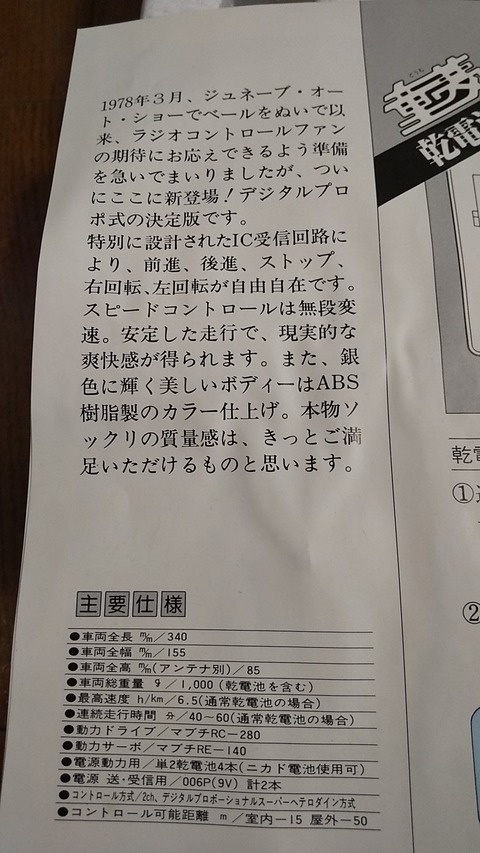 1978年3月、ジュネーブ・オー
ト・ショーでベールをぬいで以
来、ラジオコントロールファン
の期待にお応えできるよう準備
を急いでまいりましたが、つい
にここに新登場！デジタルプロ
ポ式の決定版です。
特別に設計されたIC受信回路に
より、前進、後進、ストップ、
右回転、左回転が自由自在です。
スピードコントロールは無段変
速。安定した走行で、現実的な
爽快感が得られます。また、銀
色に輝く美しいボディーはABS
樹脂製のカラー仕上げ。本物ソ
ックリの質量感は、きっとご満
足いただけるものと思います。
主要仕様
●車両全長 m/m／340
●車両全幅 m/m／155
●車両全高 m/m(アンテナ別)／85
●車両総重量 g／1,000 (乾電池を含む)
●最高速度 h/km／6.5(通常乾電池の場合)
●連続走行時間 分／40－60(通常乾電池の場合)
●動力ドライブ／マブチRC－280
●動力サーボ／マブチRE－140
●電源動力用／単2乾電池4本(ニカド電池使用可)
●電源 送・受信用／006P(9V) 計2本
●コントロール方式／2ch、デジタルプロポーショナルスーパーヘテロダイン方式
●コントロール可能距離 m／室内－15 屋外－50
童夢
乾電
乾電
①
②